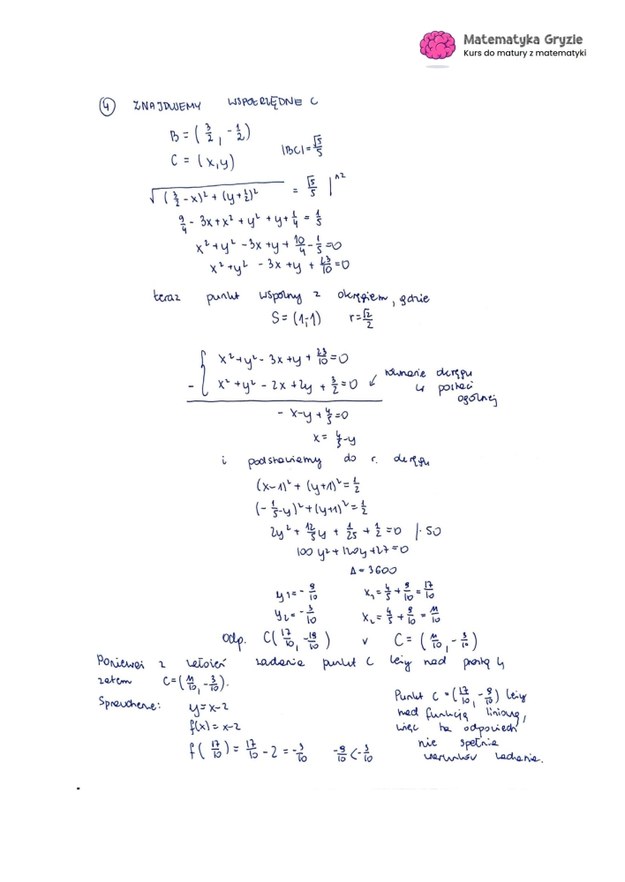 Matematyka Gryzie
Kurs do matury z matematyki
④ ZNAJDUJEMY WSPÓŁRZĘDNE C
B = (3/2, -1/2)
C = (x,y) |BC| = √5/5
√((3/2 - x)² + (y+1/2)²) = √5/5 |^2
9/4 - 3x + x² + y² + y + 1/4 = 1/5
x² + y² - 3x + y + 10/4 - 1/5 = 0
x² + y² - 3x + y + 23/10 = 0
teraz punkt wspólny z okręgiem, gdzie
S = (1,-1) r = √2/2
x² + y² - 3x + y + 23/10 = 0
- { x² + y² - 2x + 2y + 3/2 = 0 ↙ równanie okręgu w postaci ogólnej
- x - y + 4/5 = 0
x = 4/5 - y
i podstawiamy do r. okręgu
(x-1)² + (y+1)² = 1/2
(-1/5 - y)² + (y+1)² = 1/2
2y² + 12/5 y + 1/25 + 1/2 = 0 |·50
100y² + 120y + 27 = 0
Δ = 3600
y₁ = -9/10 x₁ = 4/5 + 9/10 = 17/10
y₂ = -3/10 x₂ = 4/5 + 3/10 = 11/10
Odp. C(17/10, -9/10) v C = (11/10, -3/10)
Ponieważ z założeń zadania punkt C leży nad prostą
zatem C = (11/10, -3/10).
Sprawdzenie: y = x-2
f(x) = x-2
f(17/10) = 17/10 - 2 = -3/10 -9/10 < -3/10
Punkt C = (17/10, -9/10) leży
nad funkcją liniową,
więc ta odpowiedź
nie spełnia
warunków zadania.